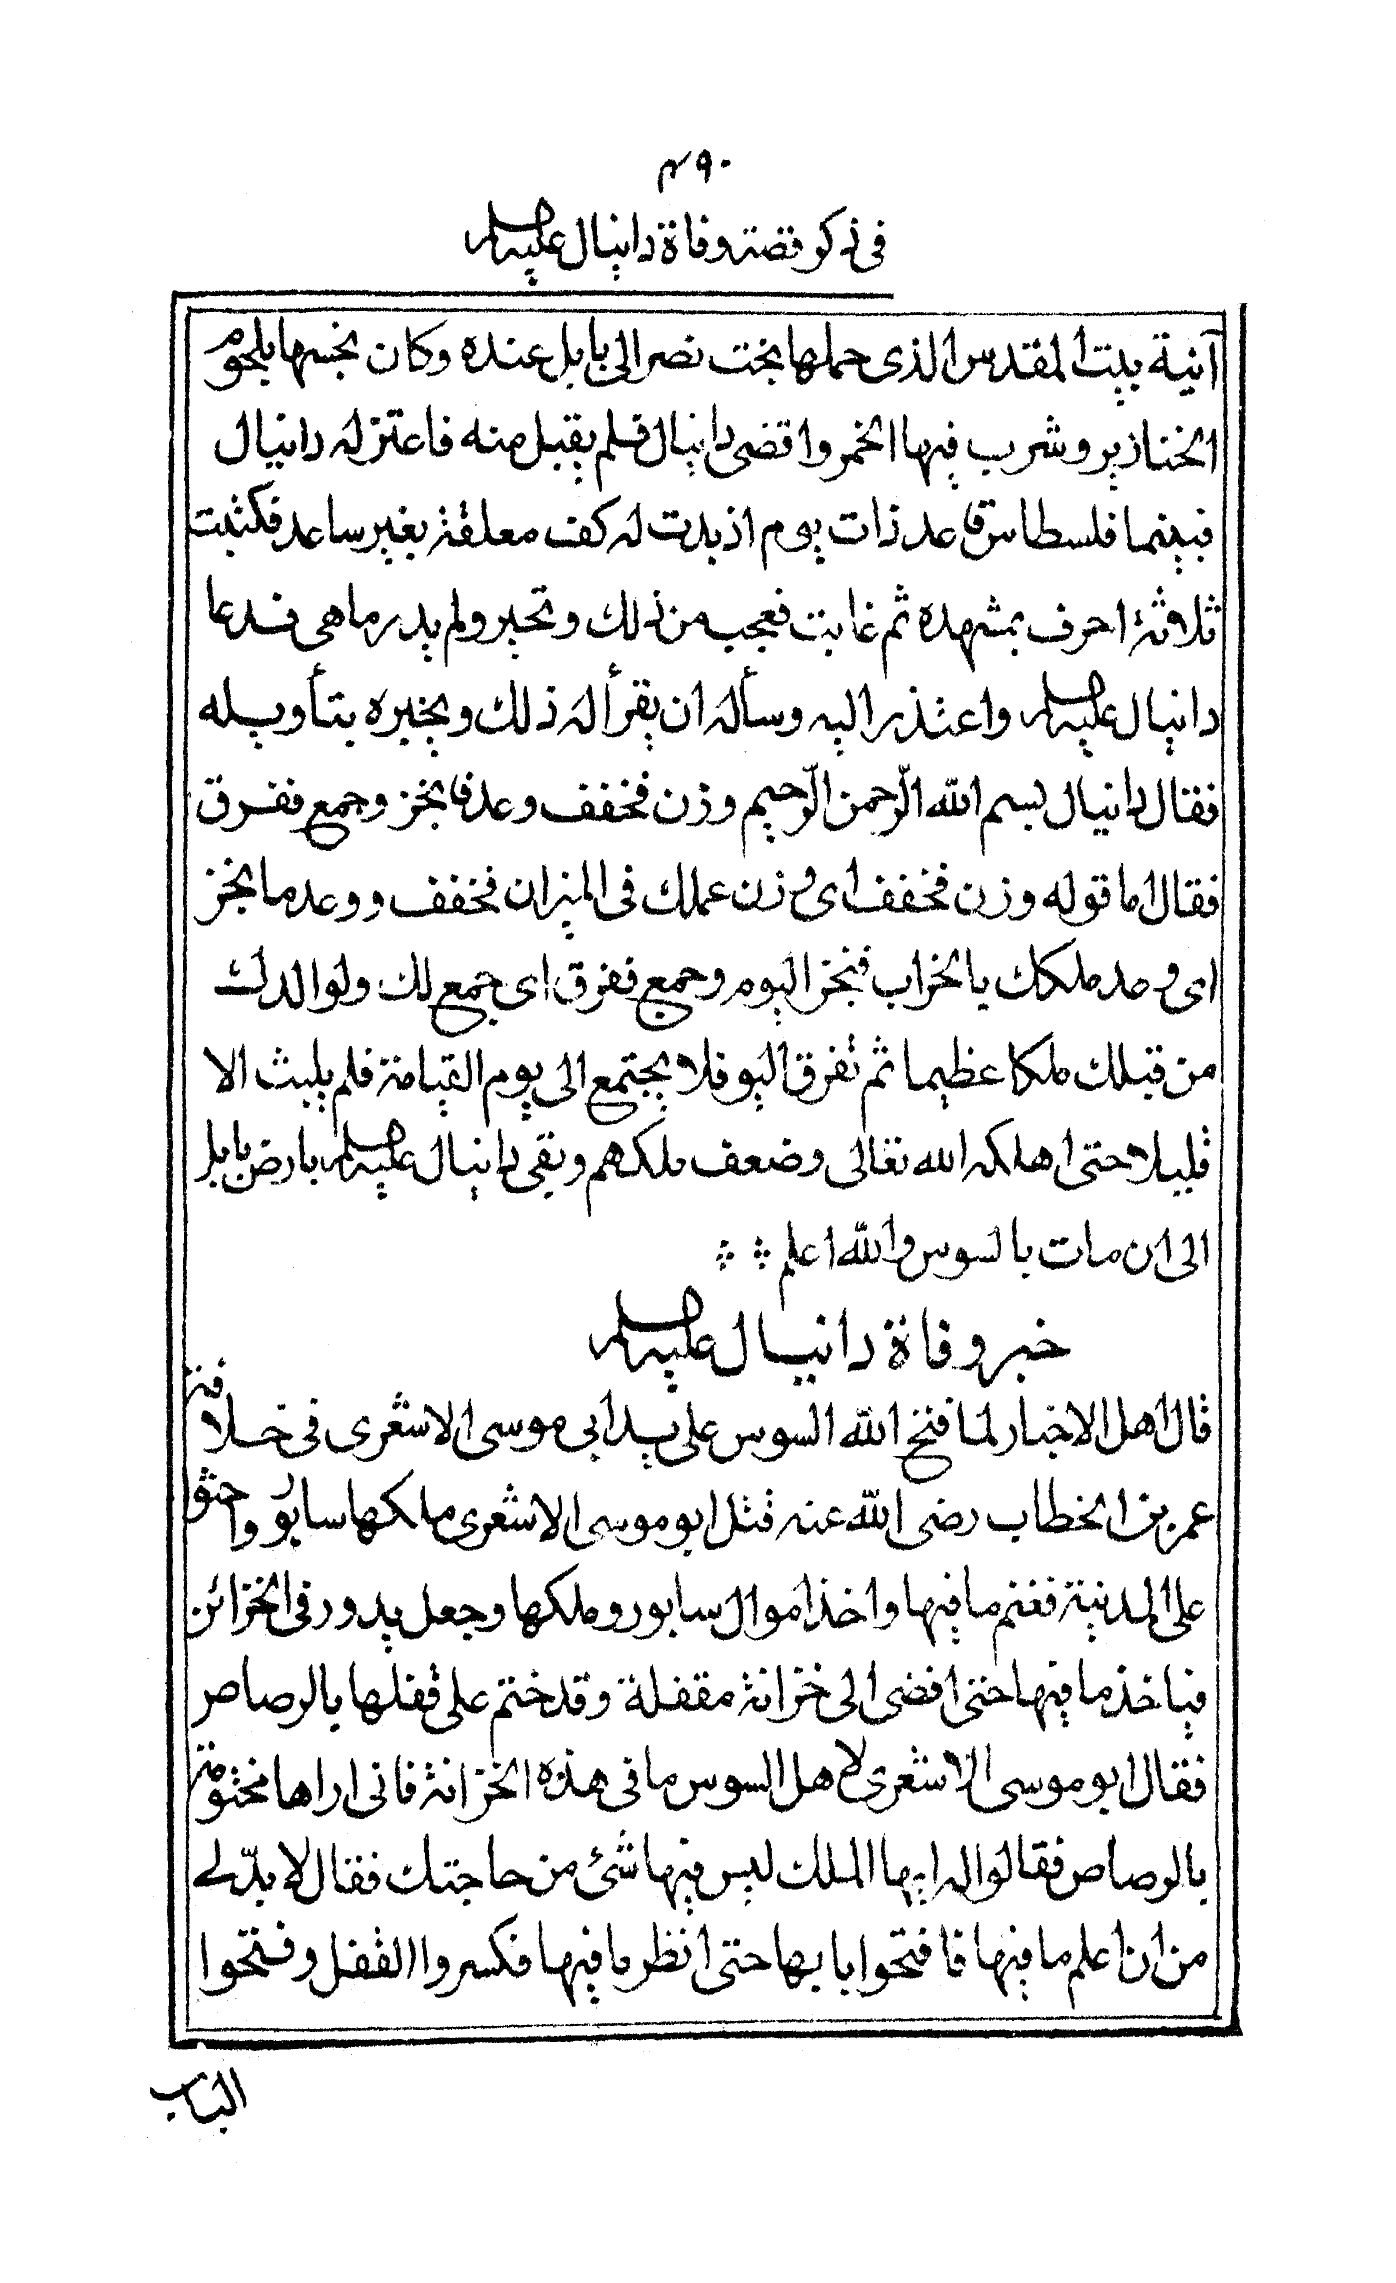 ٤٩٠
في ذكر قصة وفاة دانيال عليه السلام
آنية بيت المقدس الذى حملها بخت نصر الى بابل عنده وكان بنجسها بلحوم
الخنازير وشرب فيها الخمر واقضى دانيال فلم يقبل منه فاعتزله دانيال
فبينما فلسطاس قاعد ذات يوم اذ بدت له كف معلقة بغير ساعد فكتبت
ثلاثة احرف بمشهده ثم غابت فعجب من ذلك وتحير ولم يدر ما هى فدعا
دانيال عليه السلام واعتذر اليه وسأله ان يقرأ له ذلك ويخبره بتأويله
فقال دانيال بسم الله الرّحمن الرّحيم وزن فخفف وعد فانجز وجمع ففرق
فقال اما قوله وزن فخفف اى وزن عملك فى الميزان فخفف ووعد ما نجز
اى وعد ملكك بالخراب فنجز اليوم وجمع ففرق اى جمع لك ولوالدك
من قبلك ملكا عظيما ثم تفرق اليو فلا يجتمع الى يوم القيامة فلم يلبث الا
قليلا حتى اهلكه الله تعالى وضعف ملكهم وبقى دانيال عليه السلام بارض بابل
الى ان مات بالسوس والله اعلم
خبر وفاة دانيال عليه السلام
قال اهل الاخبار لما فتح الله السوس على يد ابى موسى الاشعرى فى خلافة
عمر بن الخطاب رضى الله عنه قتل ابو موسى الاشعرى ملكها سابور واحتوى
على المدينة فغنم ما فيها واخذ اموال سابور وملكها وجعل يدور فى الخزائن
فياخذ ما فيها حتى افضى الى خزانة مقفلة وقد ختم على قفلها بالرصاص
فقال ابو موسى الاشعرى لاهل السوس ما فى هذه الخزانة فانى اراها مختومة
بالرصاص فقالوا له ايها الملك ليس فيها شئ من حاجتك فقال لا بدّ لے
من ان اعلم ما فيها فافتحوا بابها حتى انظر ما فيها فكسروا القفل وفتحوا
الباب